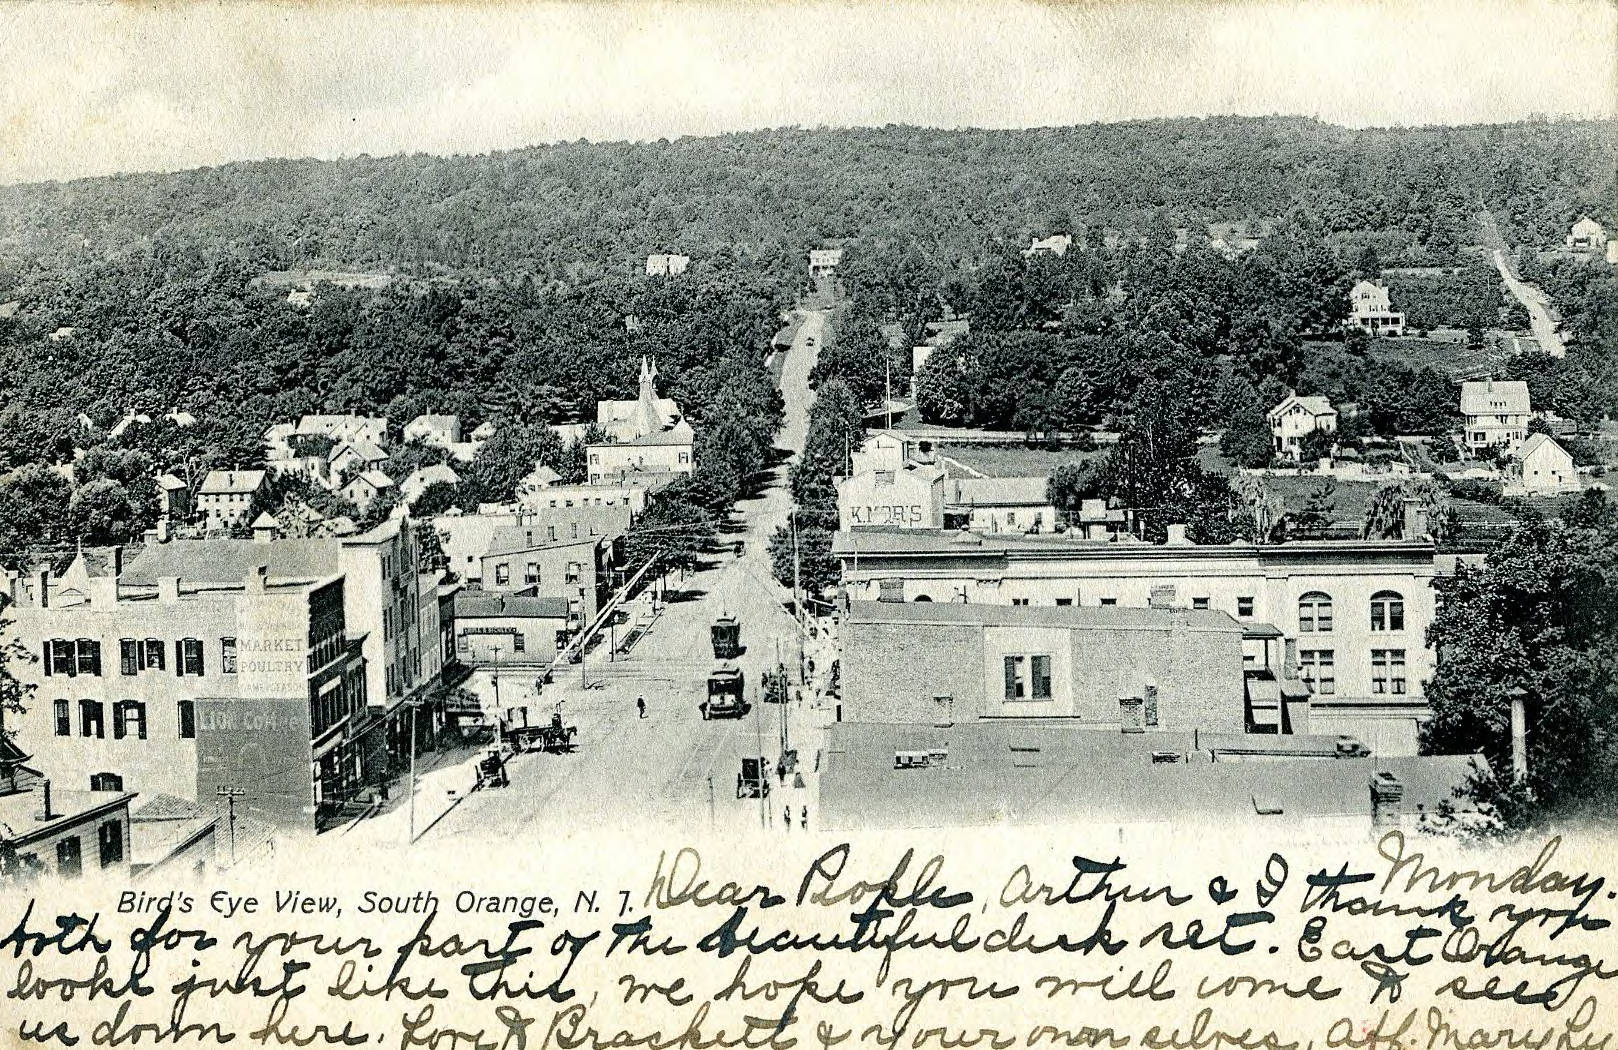 K.MOR'S
MARKET
POULTRY
LION COFFEE
Monday.
Bird's Eye View, South Orange, N. J. Dear People, Arthur & I thank you
both for your part of the beautiful desk set. East Orange
looks just like this, we hope you will come & see
us down here. Love to Brackett & your own selves, Aff. Mary Lu